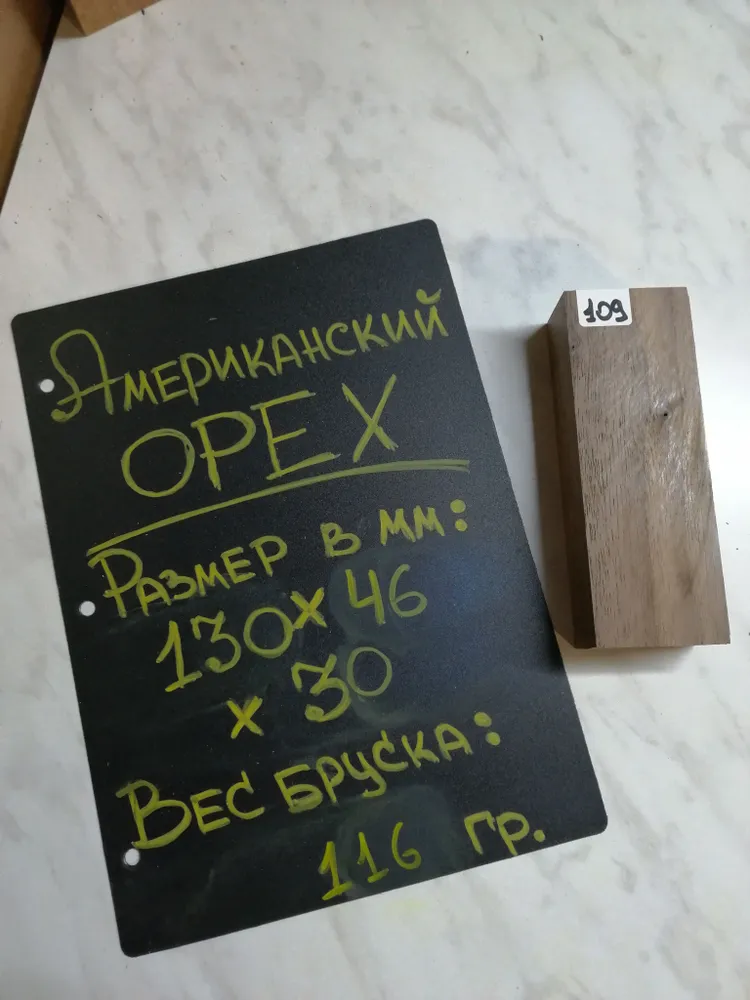 Американский
ОРЕХ
Размер в мм:
130 х 46
х 30
Вес бруска:
116 гр.
109